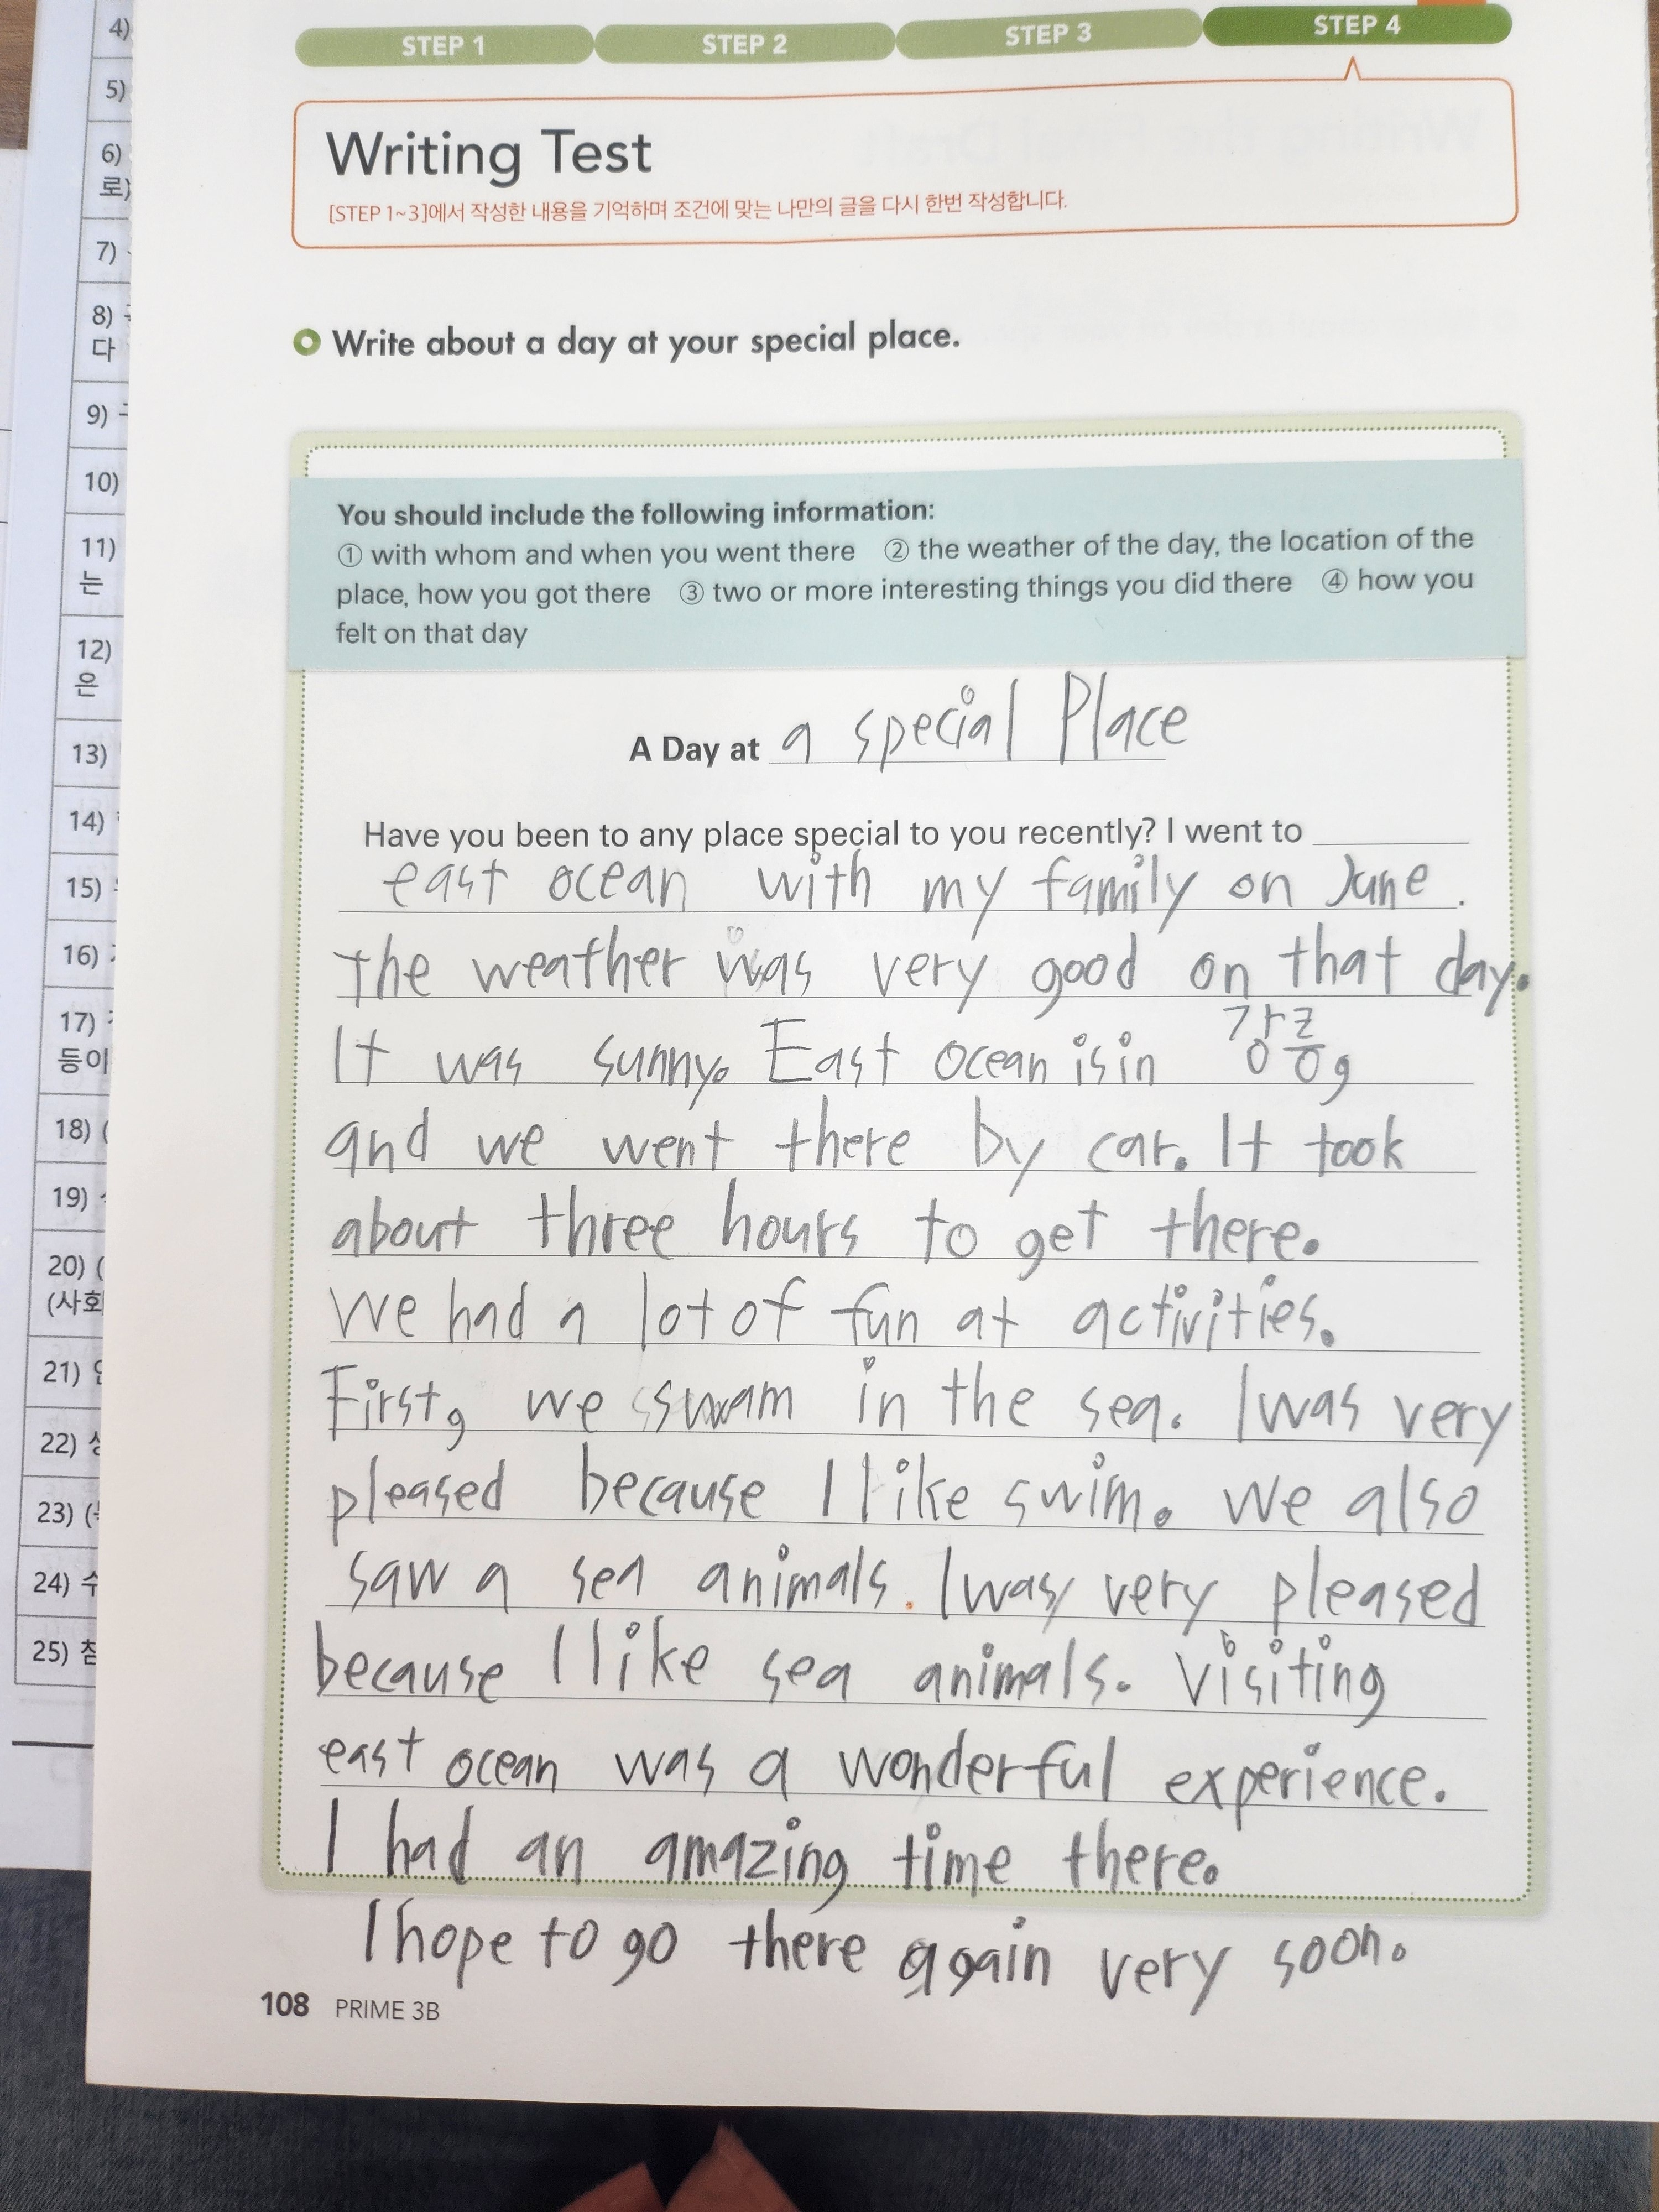 4)
5)
6)
로)
7)
8)
다
9)
10)
11)
는
12)
은
13)
14)
15)
16)
17)
등이
18) (
19)
20) (
(사회
21)
22)
23) (
24) 수
25) 침
STEP 1 STEP 2 STEP 3 STEP 4
Writing Test
[STEP 1~3]에서 작성한 내용을 기억하며 조건에 맞는 나만의 글을 다시 한번 작성합니다.
Write about a day at your special place.
You should include the following information:
① with whom and when you went there ② the weather of the day, the location of the
place, how you got there ③ two or more interesting things you did there ④ how you
felt on that day
A Day at a special Place
Have you been to any place special to you recently? I went to
east ocean with my family on June.
the weather was very good on that day.
It was sunny. East ocean is in 강릉,
and we went there by car. It took
about three hours to get there.
We had a lot of fun at activities.
First, we swam in the sea. I was very
pleased because I like swim. We also
saw a sea animals. I was very pleased
because I like sea animals. Visiting
east ocean was a wonderful experience.
I had an amazing time there.
I hope to go there again very soon.
108 PRIME 3B